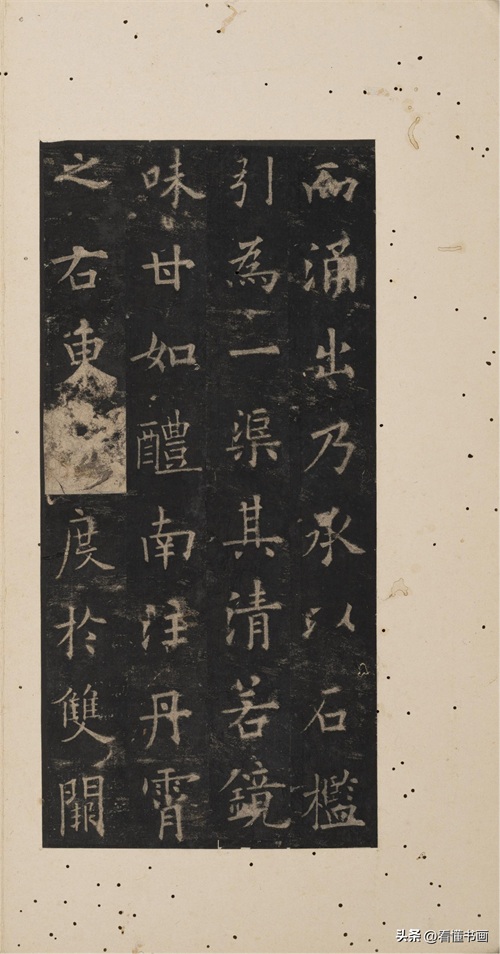 而涌出乃承以石檻
引為一渠其清若鏡
味甘如醴南注丹霄
之右東度於雙闕
头条 @看懂书画